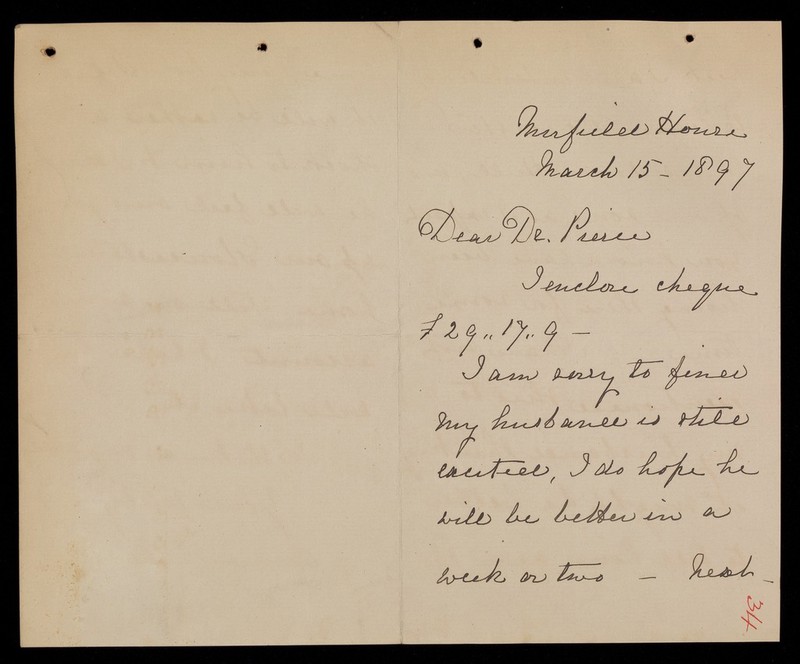 Mirfield House
March 15 - 1897
Dear Dr. Pierce
I enclose cheque
£29,, 17,, 9 -
I am sorry to find
my husband is still
excited, I do hope he
will be better in a
week or two - Next -
34